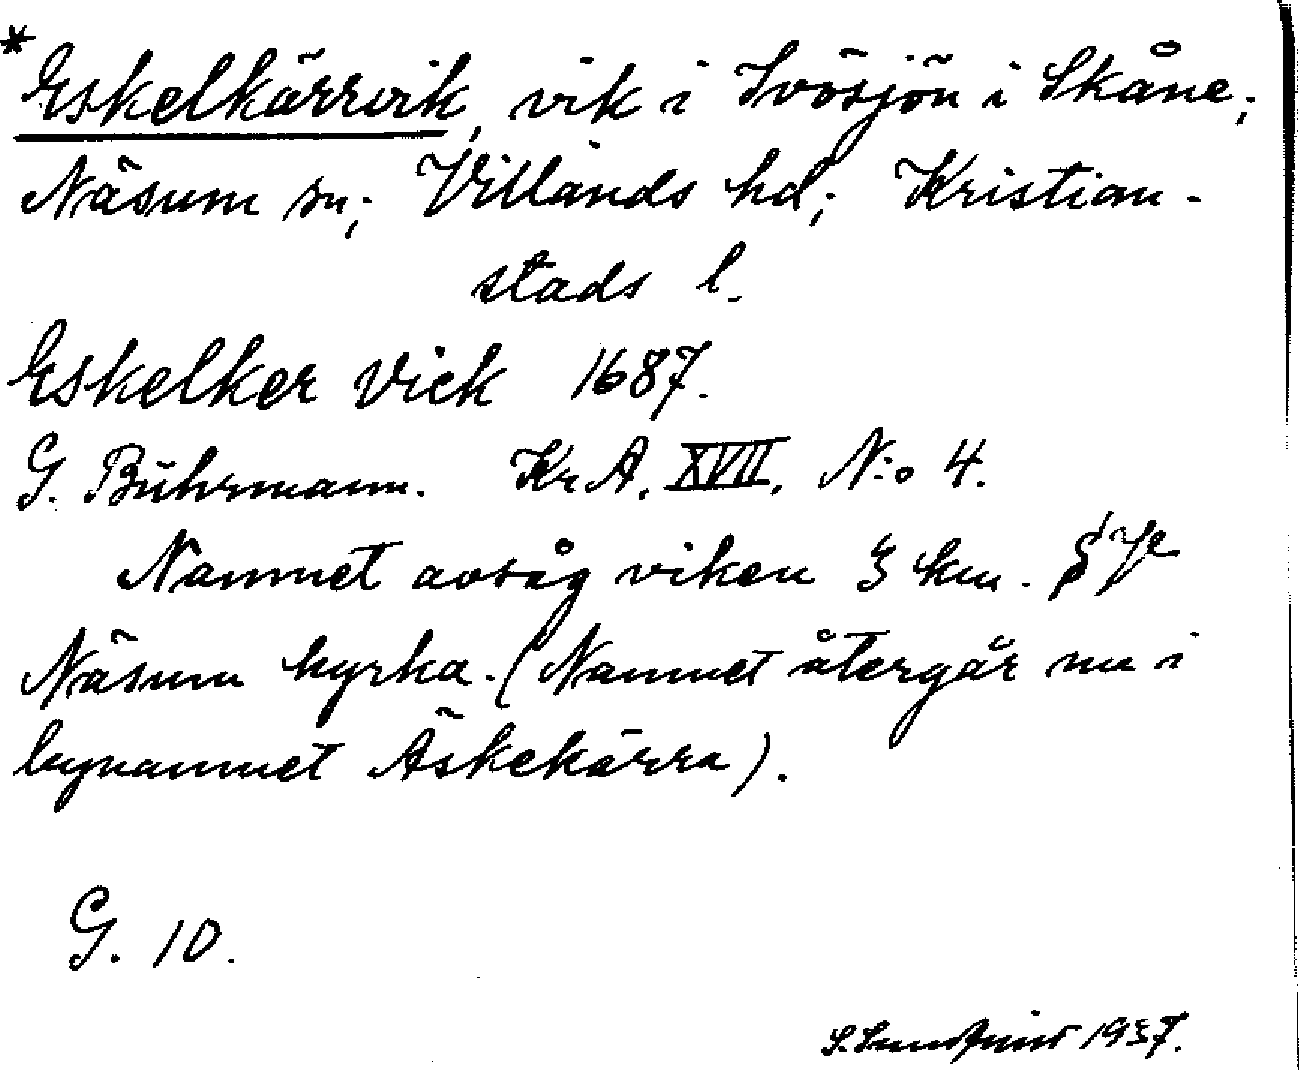 *Eskelkärrvik, vik i Ivösjön i Skåne;
Näsum sn; Villands hd; Kristian-
stads l.
Eskelker Vick 1687.
G. Bührmann. KrA. XVII. N:o 4.
Namnet avsåg viken 3 km.
Näsum kyrka. (Namnet återgår nu i
bynamnet Äskekärra).
G. 10.
1937.